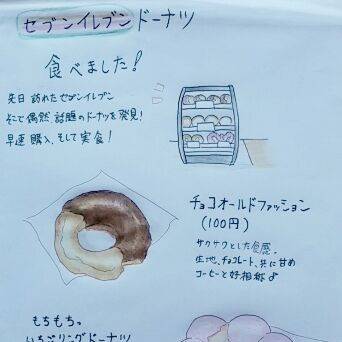 セブンイレブンドーナツ
食べました!
先日訪れたセブンイレブン
そこで偶然話題のドーナツを発見!
早速購入、そして実食!
チョコオールドファッション
(100円)
サクサクとした食感。
生地、チョコレート、共に甘め
コーヒーと好相性♂
もちもち。
いちごリングドーナツ